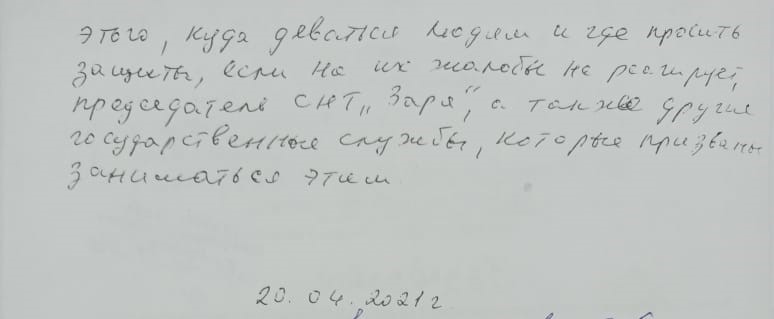 этого, куда деваться людям и где просить
защиты, если на их жалобы не реагирует
председатель СНТ „Заря", а также другие
государственные службы, которые призваны
заниматься этим
20.04.2021г